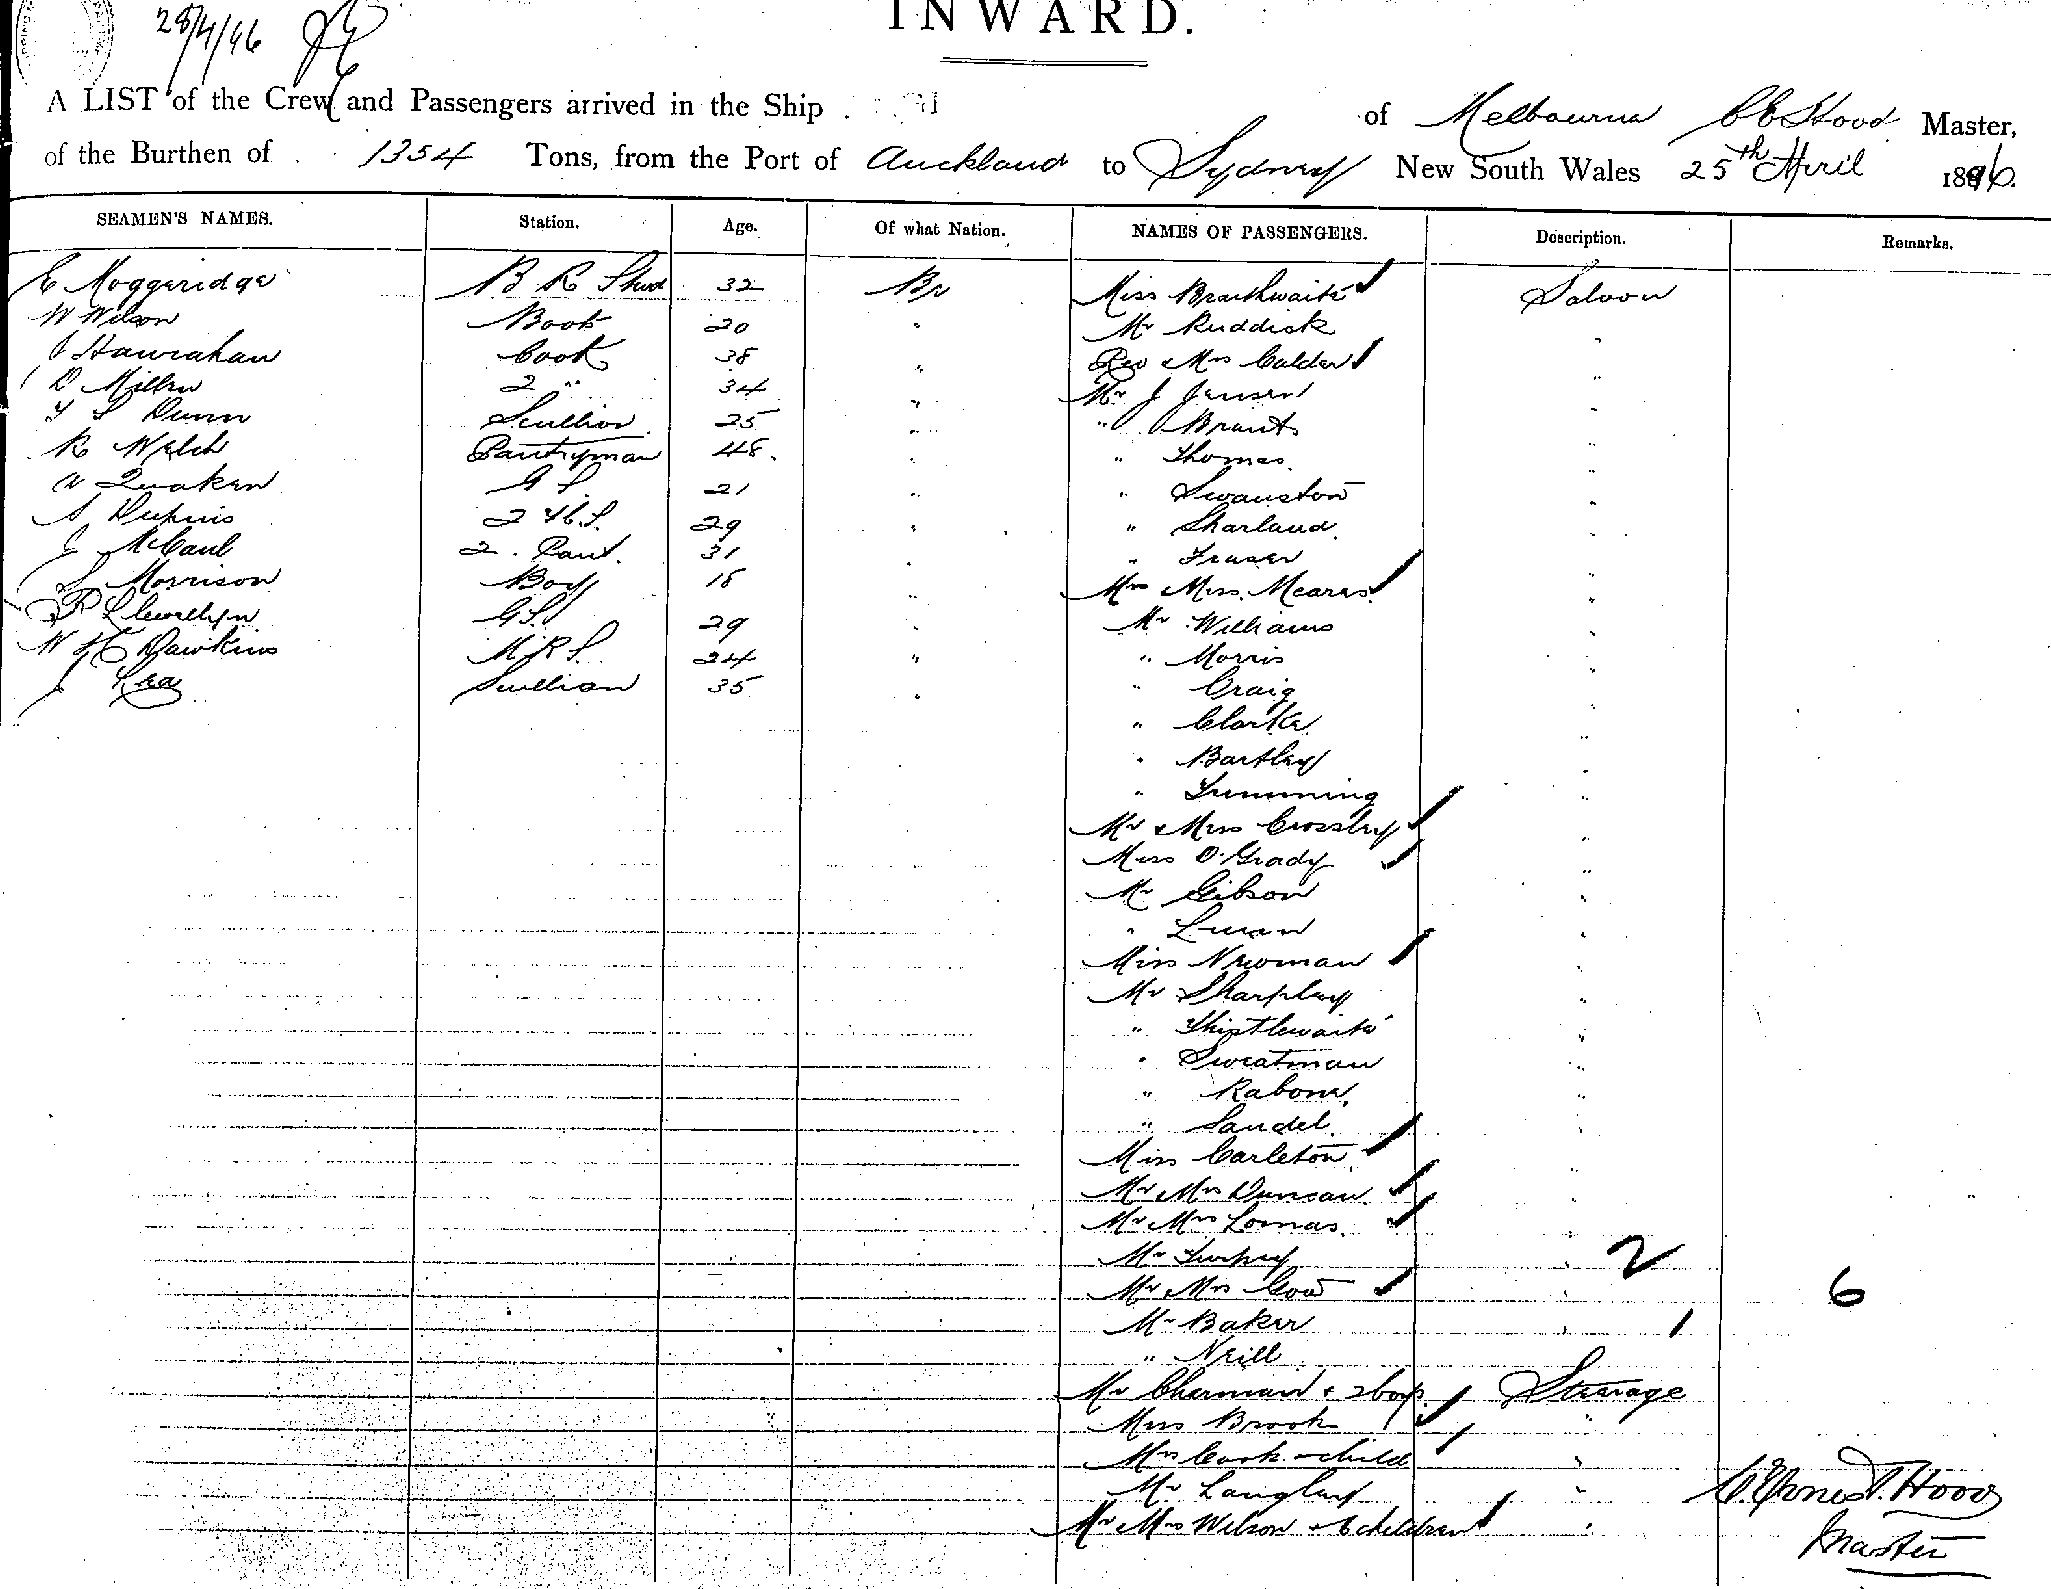 INWARD.
28/4/96
A LIST of the Crew and Passengers arrived in the Ship of Melbourne C E Hood Master,
of the Burthen of 1354 Tons, from the Port of Auckland to Sydney New South Wales 25th April 1896.
SEAMEN'S NAMES. Station. Age. Of what Nation. NAMES OF PASSENGERS. Description. Remarks.
E Moggeridge B R Stwd 32 Br Miss Braithwaite Saloon
W Wilson Book 20 " Mr Ruddick "
J Hanrahan Cook 38 " Rev & Mrs Calder "
D Miller 2 " 34 " Mr J Jensen "
T S Dunn Scullion 25 " " Brant "
R Welch Pantryman 48 " " Thomas "
A Quaken G S 21 " " Swanston "
A Dupuis 2 29 " " Sharland "
J McCaul 2. Pant. 31 " " Fraser "
S Morrison Boy 18 " Mrs & Miss Meares "
P Llewellyn G.S. 29 " Mr Williams "
W H Dawkins M R S. 24 " " Morris "
J Lea Scullion 35 " " Craig "
" Clarke "
" Bartley "
"
Mr & Miss Crossley "
Miss O'Grady "
Mr Gibson "
"
Miss Newman "
Mr Sharpley "
" Thistlewaite "
" Sweatman "
" Rabone "
" Sandel "
Miss Carleton "
Mr & Mrs Duncan "
Mr & Mrs Lomas "
Mr " 2
Mr & Mrs Gow " 6
Mr Baker " 1
" Neill
Mr Cherman & 2 boys Steerage
Miss Brook "
Mrs Cook & child "
Mr Langley " C. Ernest. Hood
Mr & Mrs Wilson & 6 children " Master